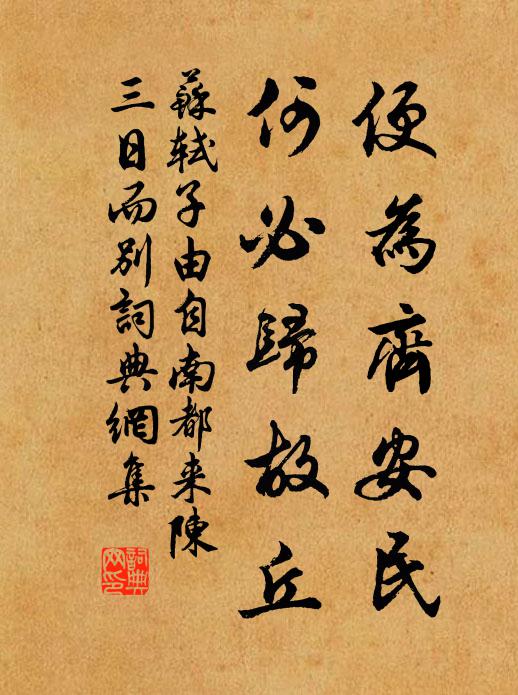 便為齊安民
何必歸故丘
蘇軾子由自南都来陳
三日而別詞典網集
詞典
网印